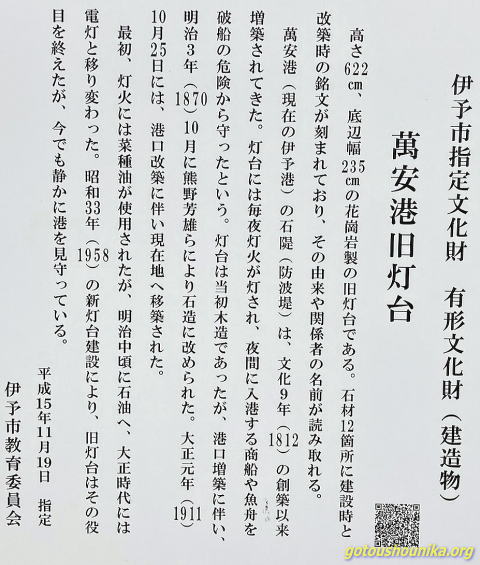 伊予市指定文化財　有形文化財（建造物）
萬安港旧灯台
高さ622cm、底辺幅235cmの花崗岩製の旧灯台である。石材12箇所に建設時と
改築時の銘文が刻まれており、その由来や関係者の名前が読み取れる。
萬安港（現在の伊予港）の石隄（防波堤）は、文化9年（1812）の創築以来
増築されてきた。灯台には毎夜灯火が灯され、夜間に入港する商船や魚舟を
破船の危険から守ったという。灯台は当初木造であったが、港口増築に伴い、
明治3年（1870）10月に熊野芳雄らにより石造に改められた。大正元年（1911）
10月25日には、港口改築に伴い現在地へ移築された。
最初、灯火には菜種油が使用されたが、明治中頃に石油へ、大正時代には
電灯と移り変わった。昭和33年（1958）の新灯台建設により、旧灯台はその役
目を終えたが、今でも静かに港を見守っている。
平成15年11月19日　指定
伊予市教育委員会
gotoushounika.org